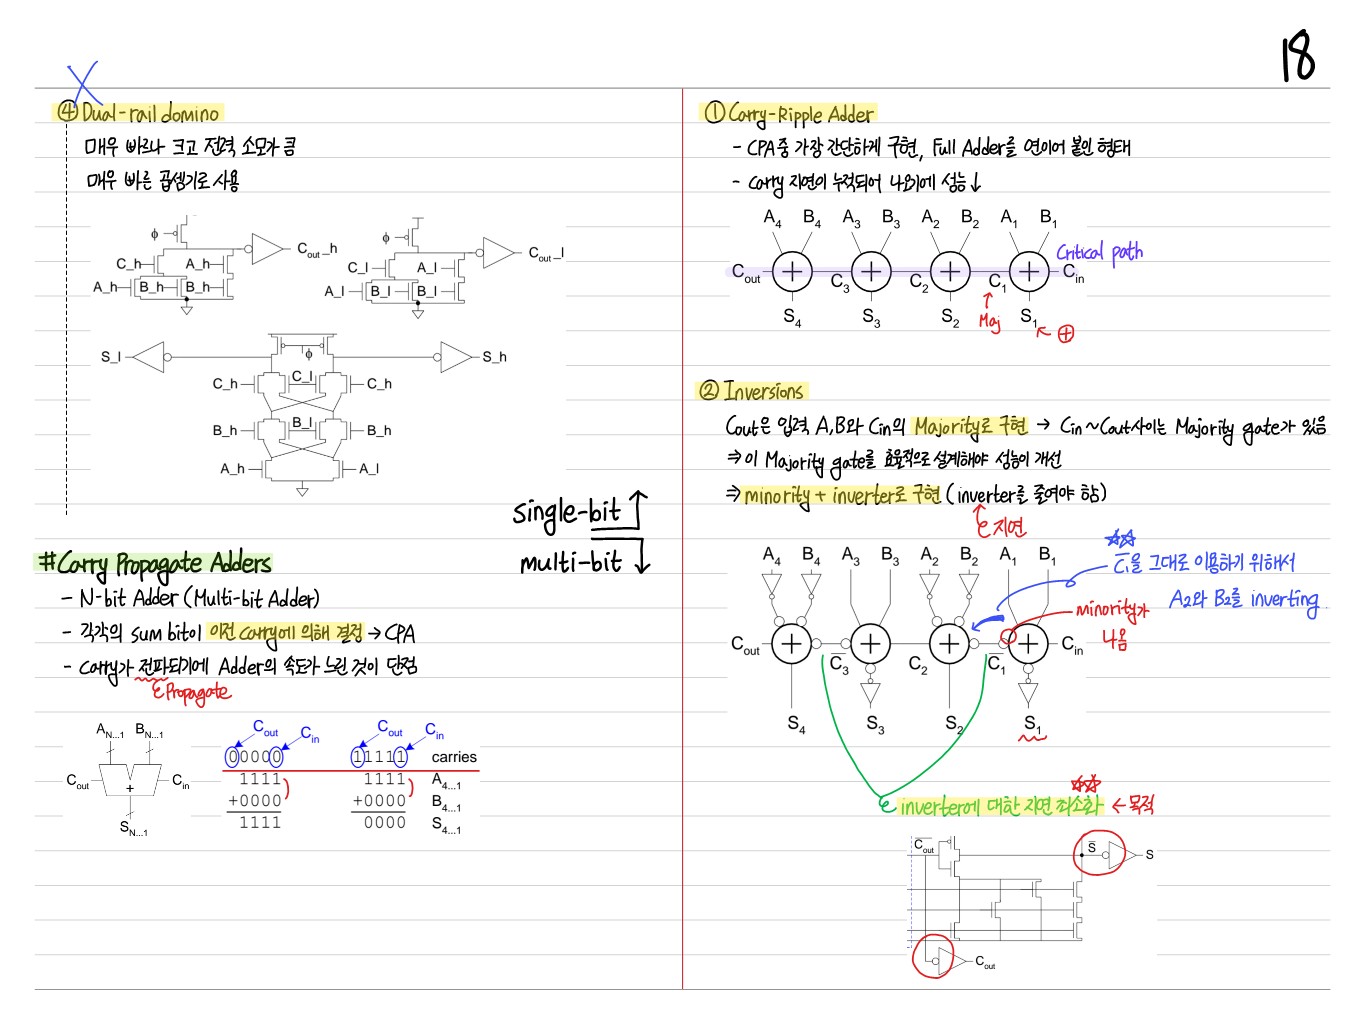 18
④ Dual-rail domino
매우 빠르나 크고 전력 소모가 큼
매우 빠른 곱셈기로 사용
ϕ
C_h
A_h
A_h
B_h
B_h
Cout_h
ϕ
C_l
A_l
A_l
B_l
B_l
Cout_l
S_l
ϕ
S_h
C_h
C_l
C_h
B_h
B_l
B_h
A_h
A_l
single-bit ↑
multi-bit ↓
#Carry Propagate Adders
- N-bit Adder (Multi-bit Adder)
- 각각의 sum bit이 이전 carry에 의해 결정 → CPA
- Carry가 전파되기에 Adder의 속도가 느린 것이 단점
Propagate
AN...1 BN...1
Cout + Cin
SN...1
Cout Cin Cout Cin
00000 11111 carries
1111 1111 A4...1
+0000 +0000 B4...1
1111 0000 S4...1
① Carry-Ripple Adder
- CPA중 가장 간단하게 구현, Full Adder를 연이어 붙인 형태
- Carry 지연이 누적되어 나오기에 성능↓
A4 B4 A3 B3 A2 B2 A1 B1
Critical path
Cout C3 C2 C1 Cin
S4 S3 S2 S1
↑ Maj
← ⊕
② Inversions
Cout은 입력 A,B와 Cin의 Majority로 구현 → Cin~Cout사이는 Majority gate가 있음
⇒ 이 Majority gate를 효율적으로 설계해야 성능이 개선
⇒ minority + inverter로 구현 (inverter를 줄여야 함)
지연
A4 B4 A3 B3 A2 B2 A1 B1
☆☆
C̅1을 그대로 이용하기 위해서
A2와 B2를 inverting
minority가
나옴
Cout C̅3 C2 C̅1 Cin
S4 S3 S2 S1
☆☆
inverter에 대한 지연 최소화 ← 목적
C̅out
S̅
S
Cout